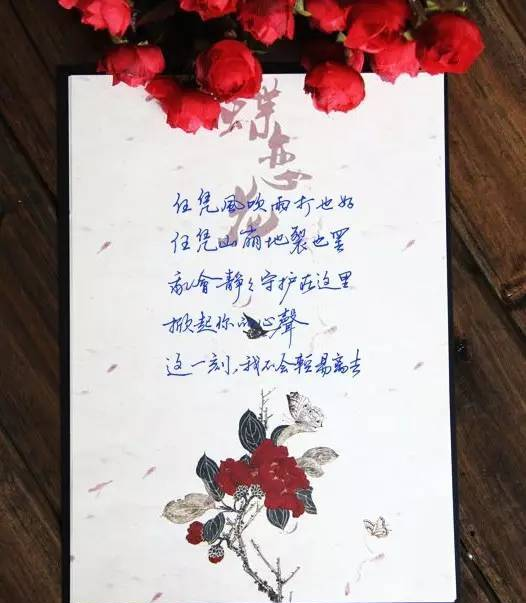 蝶恋花
任凭風吹雨打也好
任凭山崩地裂也罢
我會静々守护在这里
掀起你的心聲
这一刻,我不会輕易离去